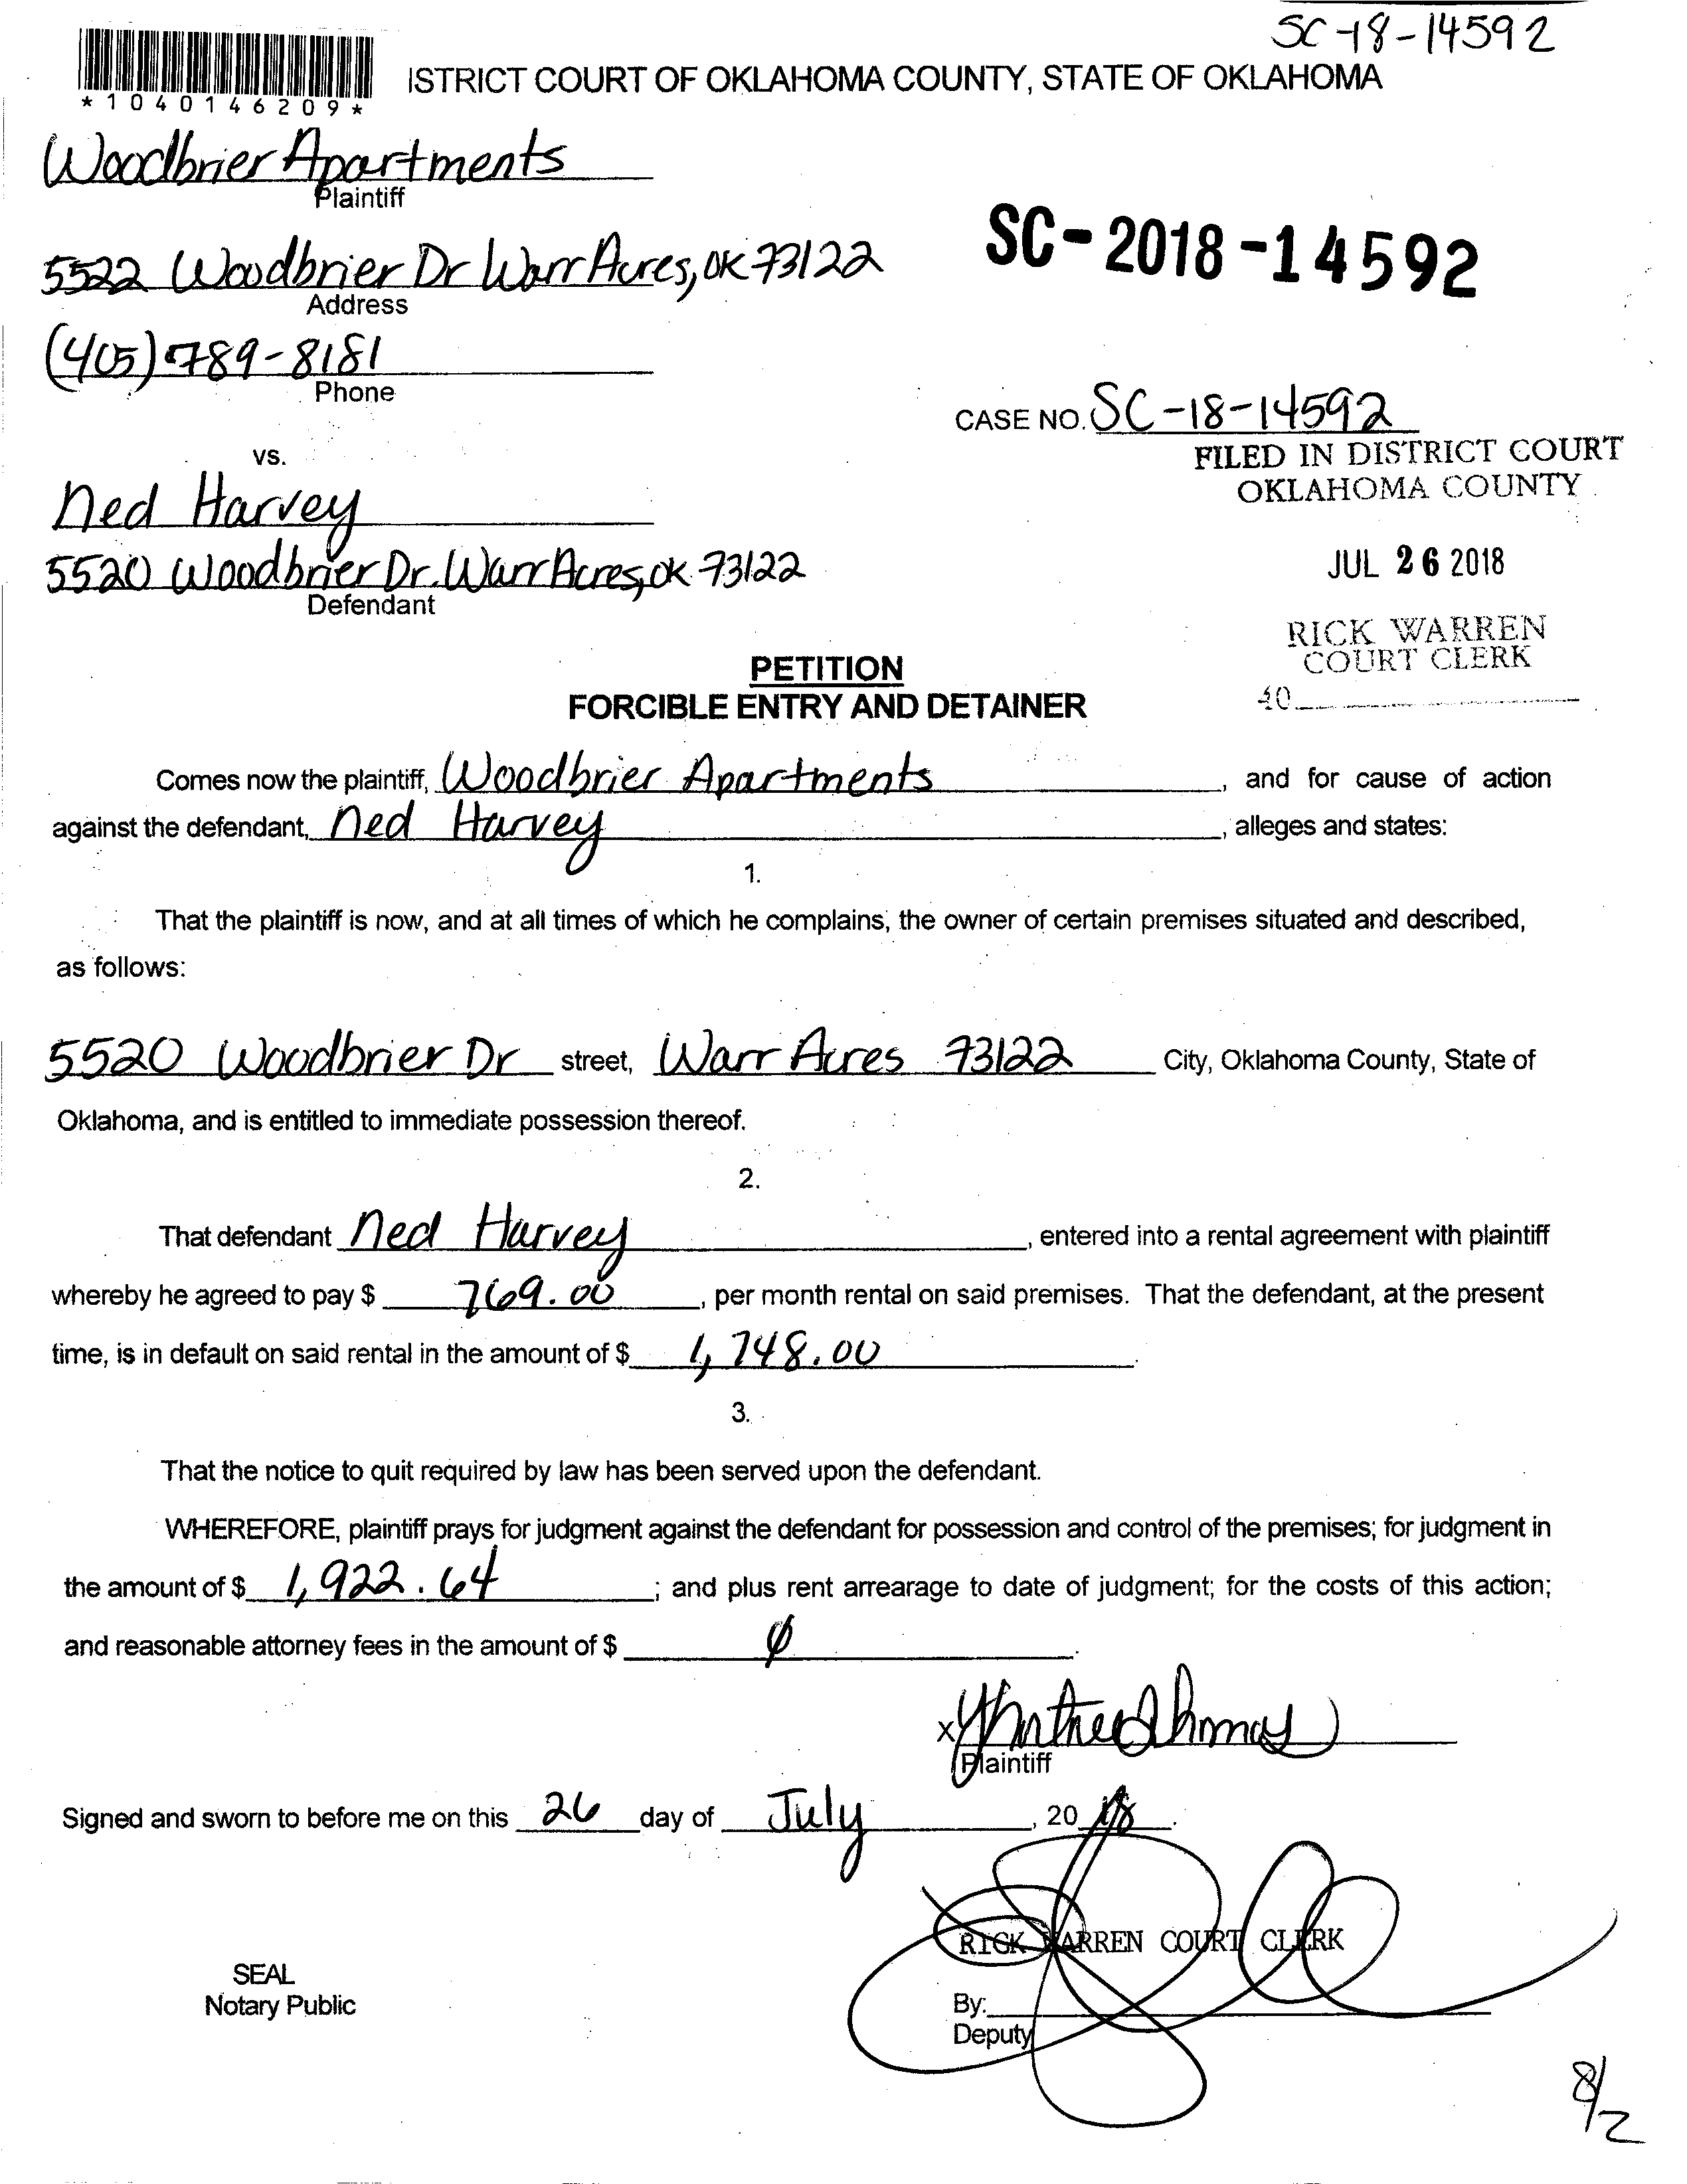 SC-18-14592
ISTRICT COURT OF OKLAHOMA COUNTY, STATE OF OKLAHOMA
*1040146209*
Woodbrier Apartments
Plaintiff
5522 Woodbrier Dr Warr Acres, OK 73122
Address
SC-2018-14592
(405) 789-8181
Phone
CASE NO. SC-18-14592
FILED IN DISTRICT COURT
OKLAHOMA COUNTY
vs.
Ned Harvey
5520 Woodbrier Dr. Warr Acres, OK 73122
Defendant
JUL 26 2018
RICK WARREN
COURT CLERK
40
PETITION
FORCIBLE ENTRY AND DETAINER
Comes now the plaintiff, Woodbrier Apartments, and for cause of action
against the defendant, Ned Harvey, alleges and states:
1.
That the plaintiff is now, and at all times of which he complains, the owner of certain premises situated and described,
as follows:
5520 Woodbrier Dr street, Warr Acres 73122 City, Oklahoma County, State of
Oklahoma, and is entitled to immediate possession thereof.
2.
That defendant Ned Harvey, entered into a rental agreement with plaintiff
whereby he agreed to pay $ 769.00, per month rental on said premises. That the defendant, at the present
time, is in default on said rental in the amount of $ 1,748.00.
3.
That the notice to quit required by law has been served upon the defendant.
WHEREFORE, plaintiff prays for judgment against the defendant for possession and control of the premises; for judgment in
the amount of $ 1,922.64; and plus rent arrearage to date of judgment; for the costs of this action;
and reasonable attorney fees in the amount of $ ϕ.
x
Plaintiff
Signed and sworn to before me on this 26 day of July, 2018.
RICK WARREN COURT CLERK
SEAL
Notary Public
By:
Deputy
8/2